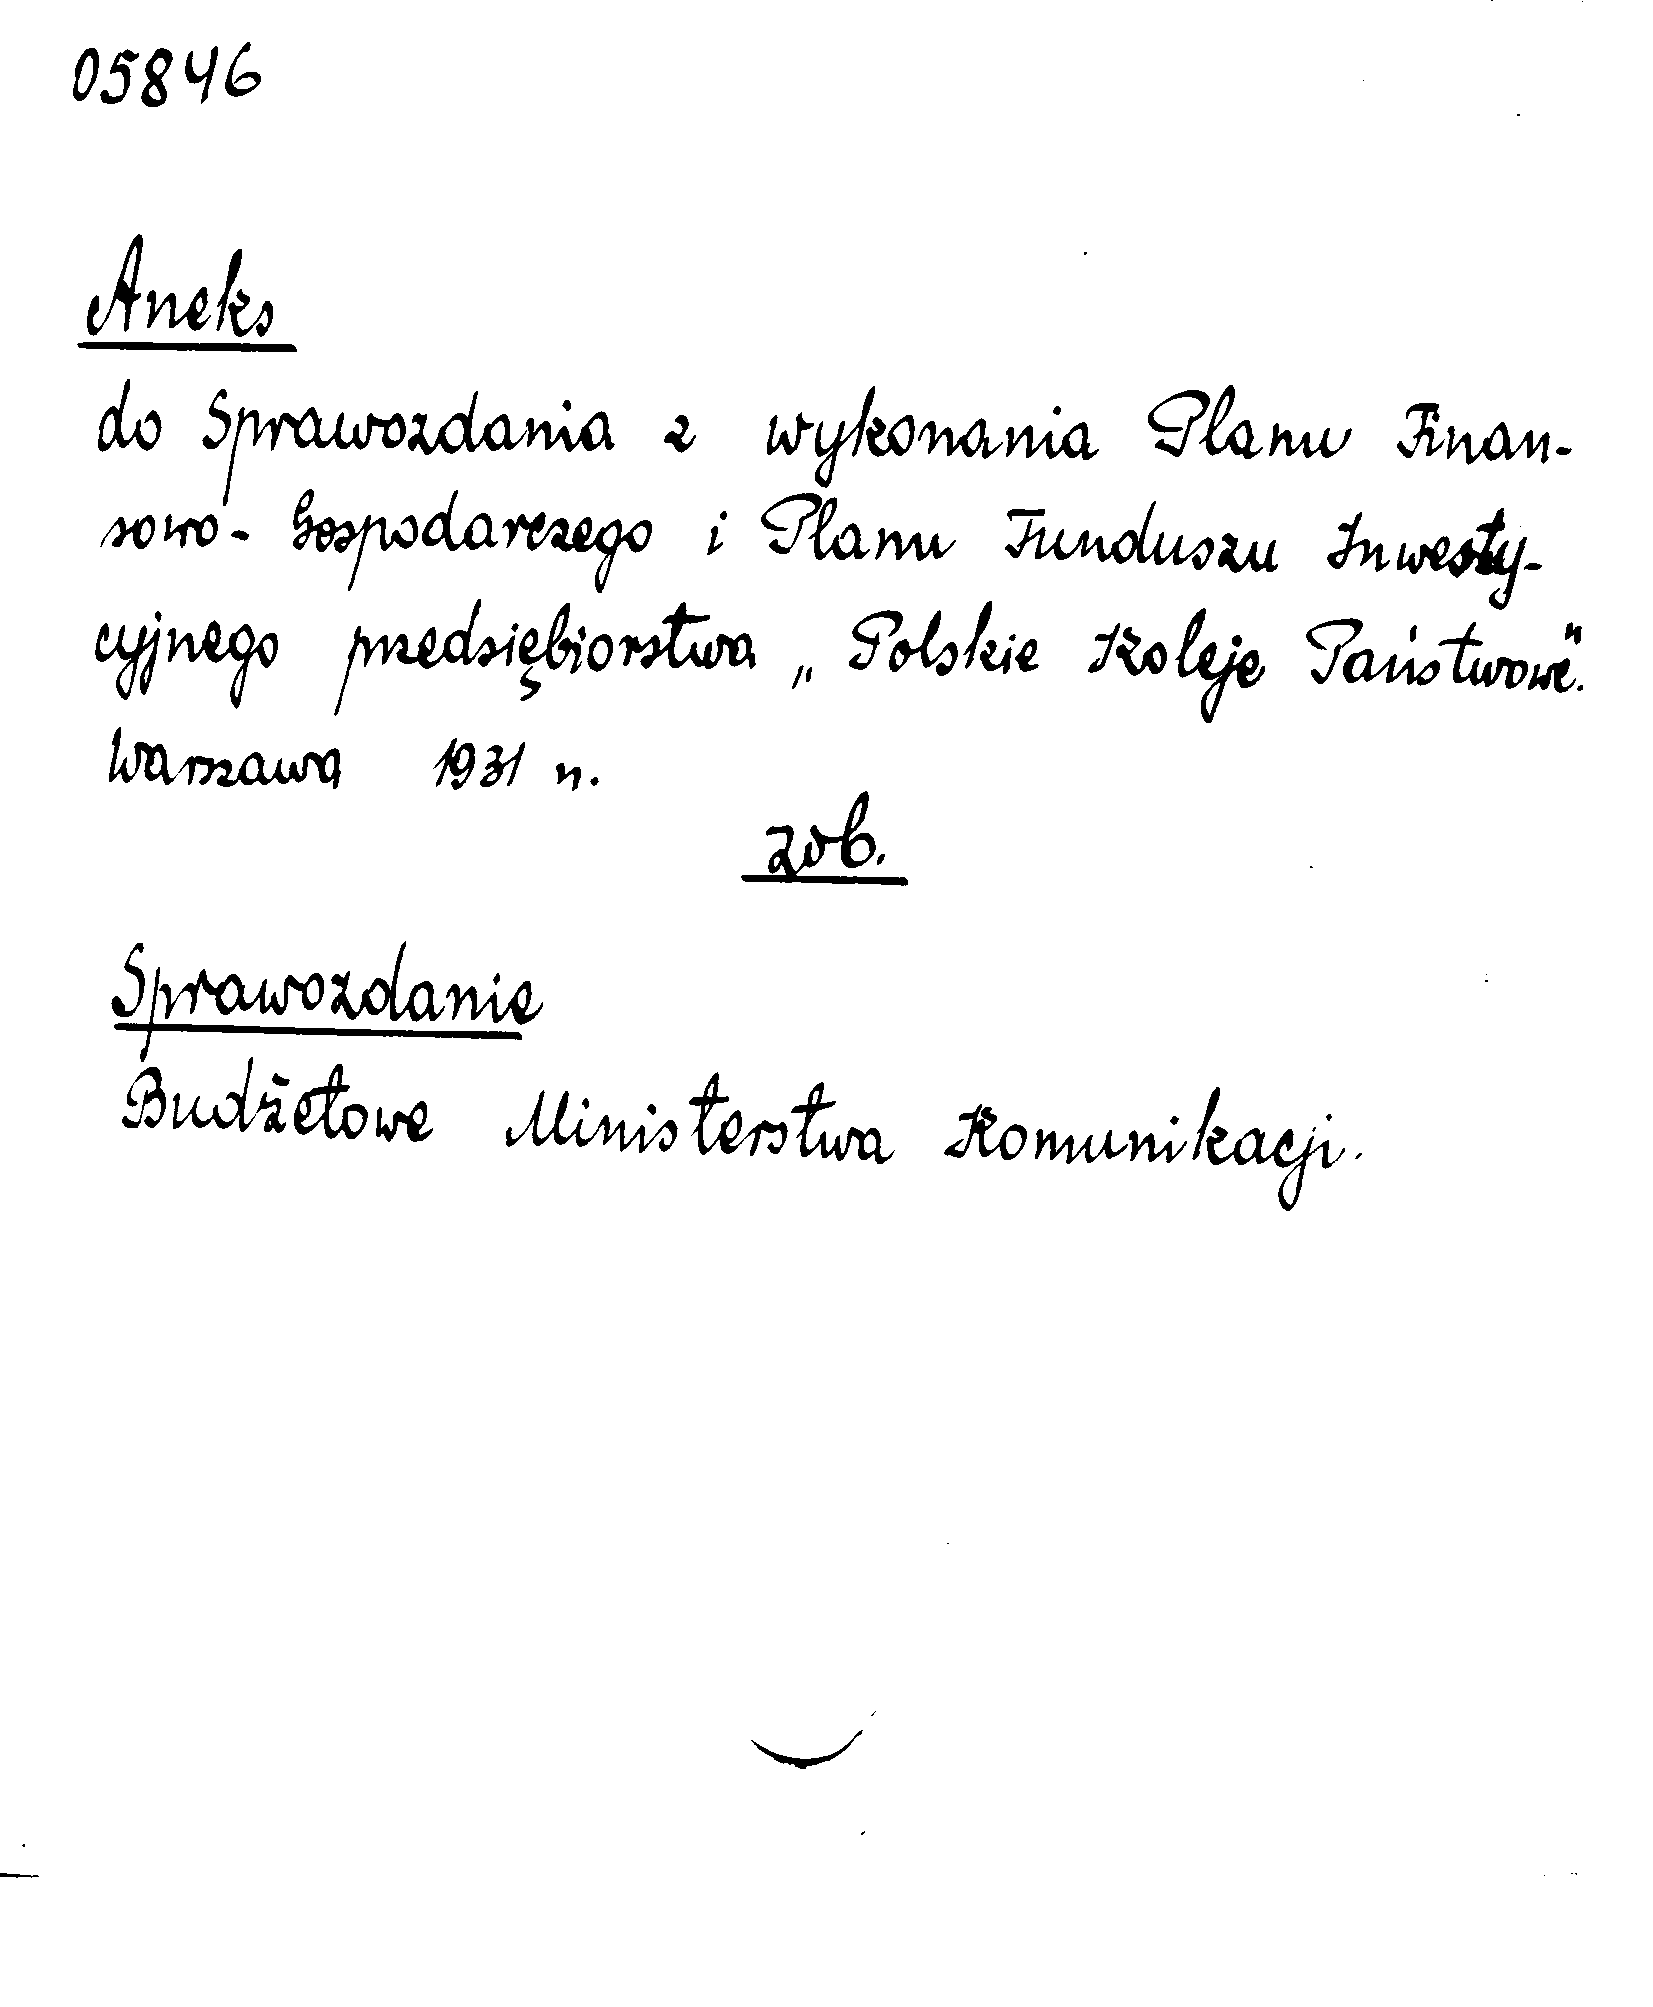 05846
Aneks
do Sprawozdania z wykonania Planu Finan-
sowo- Gospodarczego i Planu Funduszu Inwesty-
cyjnego przedsiębiorstwa „Polskie Koleje Państwowe".
Warszawa 1931 r.
zob.
Sprawozdanie
Budżetowe Ministerstwa Komunikacji.